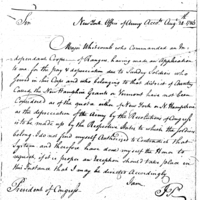 Sir New York Office of Army Accts Augt 28 1786
Major Whitcomb who Commanded an In-
dependant Corps of Rangers having made an Application
to me for the pay & depreciation due to Sundry Soldiers who
served in his Corps and who belonging to that district of Country
Called the New Hampshire Grants or Vermont have not been
Considered as of the quota either of New York or N. Hampshire
as the depreciation of the Army by the Resolutions of Congress
is to be made up by the Respective States to which the soldiers
belong I do not find myself Authorised to Contradict that
System and therefore have done myself the Honor to
request, if it is proper an exception should take place in
this Instance that I may be directed Accordingly
I am
President of Congress